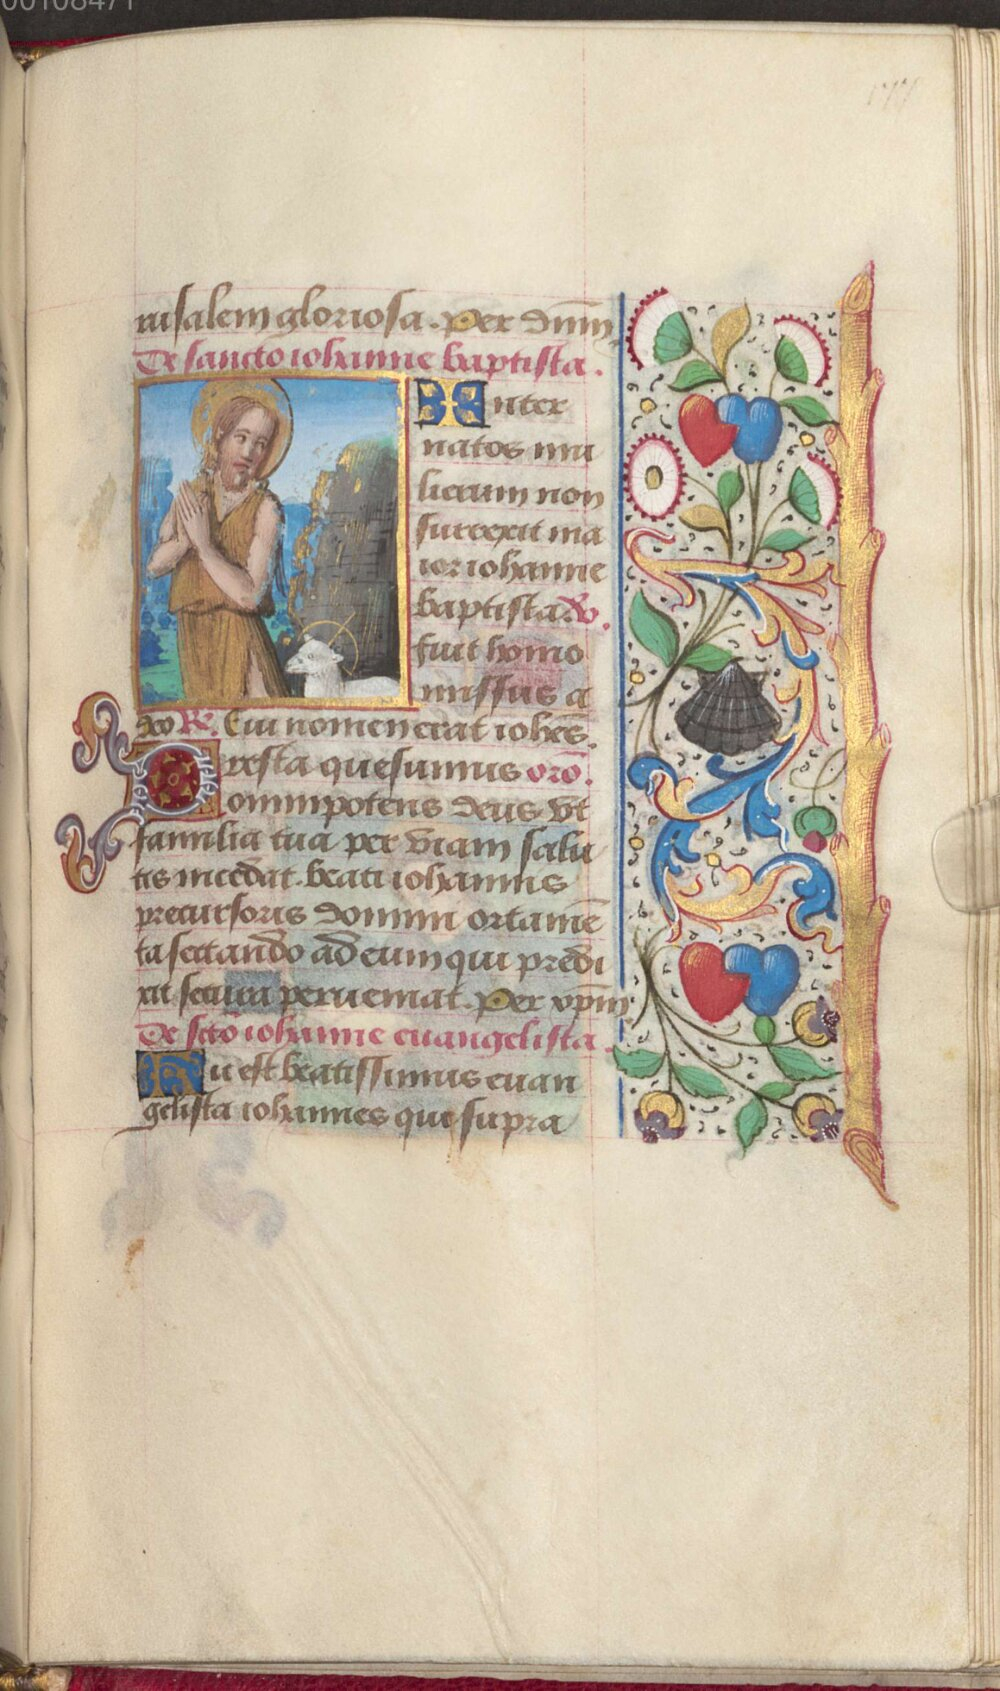 00108471
rusalem gloriosa. Per dn̄m
De sancto iohanne baptista.
Inter
natos mu
lierum non
surrexit ma
ior iohanne
baptista. V.
fuit homo
missus a
deo R. Cui nomen erat iohēs.
Presta quesumus orō.
omnipotens deus vt
familia tua per viam salu
tis incedat. beati iohannis
precursoris domini ortamē
ta sectando ad eum qui predi
xit secura perueniat. Per xp̄m
De scto iohanne euangelista.
Hic est beatissimus euan
gelista iohannes qui supra